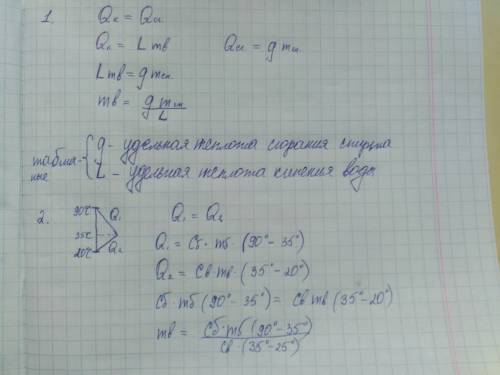 1. Qк = Qсг.
Qк = L mв Qсг = q mсг.
L mв = q mсп.
mв = q mсп / L
таблич-
ные { q - удельная теплота сгорания спирта
L - удельная теплота кипения воды
2. 90°C Q₁ Q₁ = Q₂
35°C Q₁ = Cб · mб · (90° - 35°)
20°C Q₂ Q₂ = Cв mв · (35° - 20°)
Cб · mб (90° - 35°) = Cв mв (35° - 20°)
mв = Cб · mб (90° - 35°) / Cв · (35° - 25°)